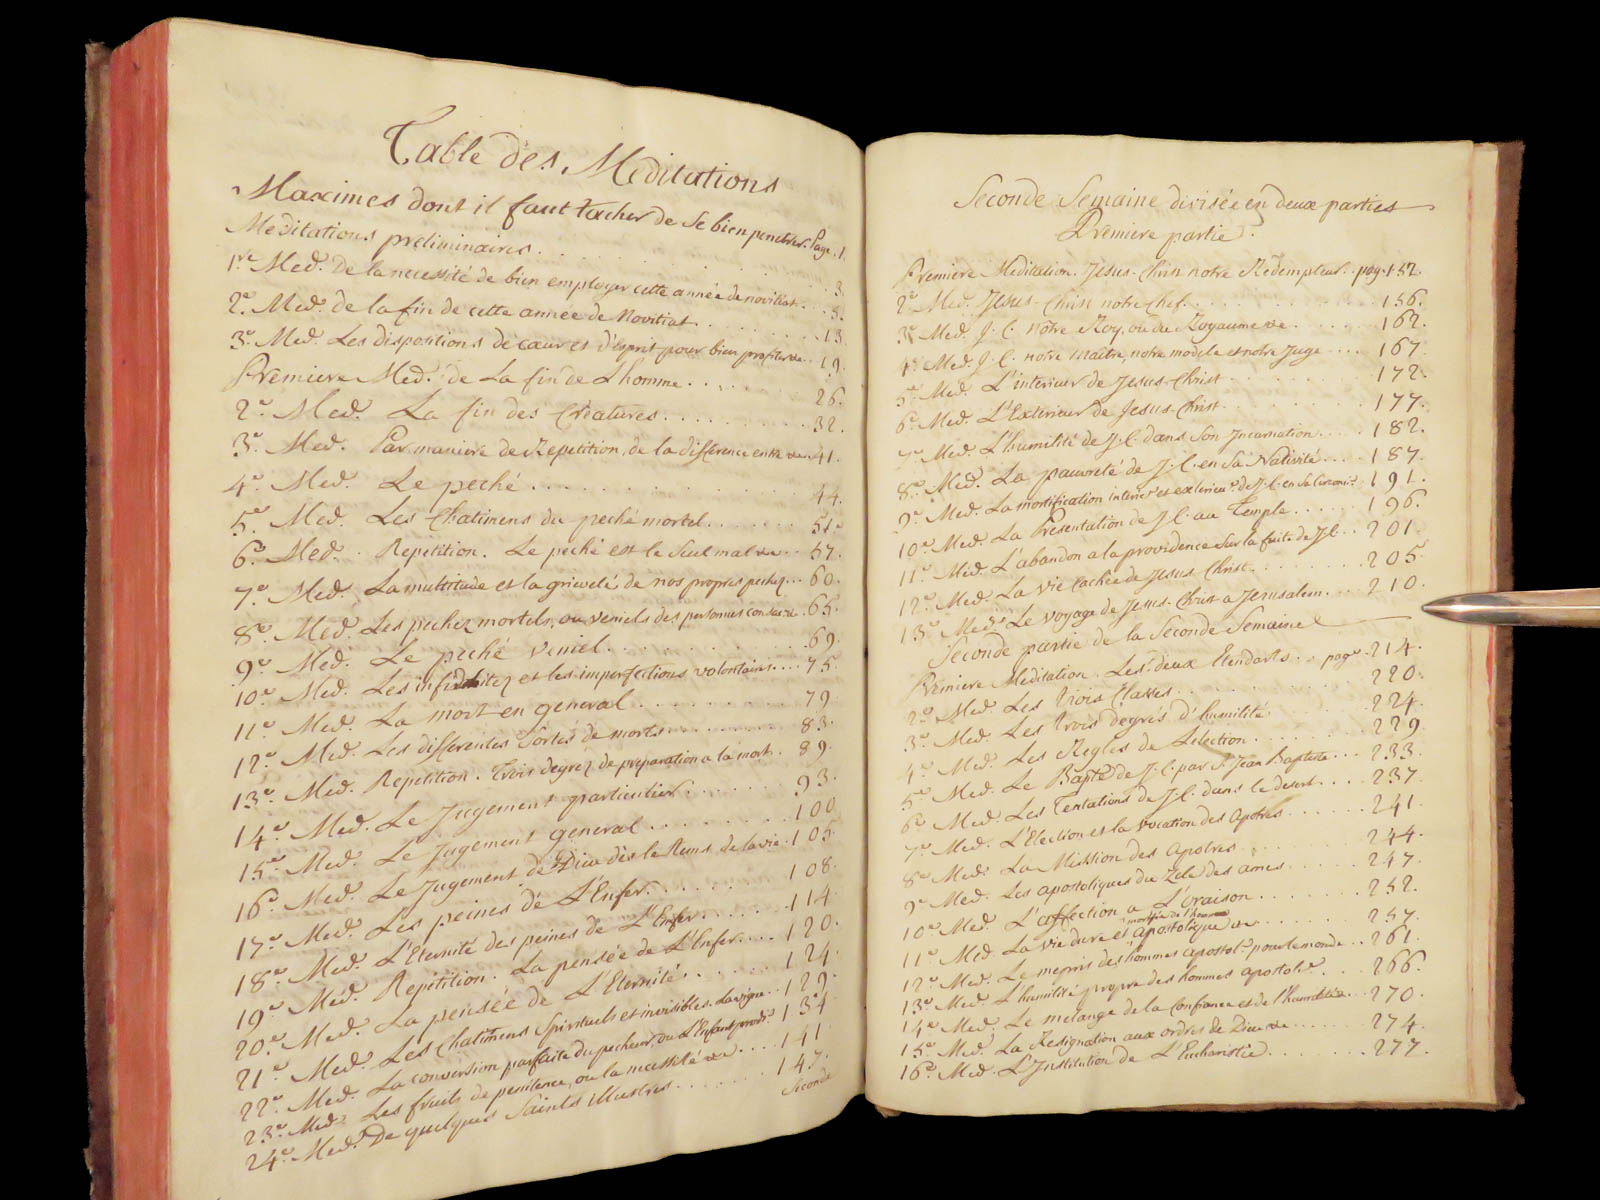 Table des Meditations
Maximes dont il faut tacher de se bien penetrer. Page. 1.
Meditations preliminaires . . . 3.
1re Med. De la necessité de bien employer cette année de novitiat . . . 8.
2e. Med. de la fin de cette année de Novitiat . . . 13.
3e. Med. Les dispositions de cœur et d'esprit pour bien profiter &a . . 19.
Premiere Med. de La fin de L'homme . . . 26.
2e. Med. La fin des Creatures . . . 32.
3e. Med. Par maniere de Repetition, de la difference entre &a 41.
4e. Med. Le peché . . . 44.
5e. Med. Les Chatimens du peché mortel . . . 51.
6e. Med. Repetition. Le peché est le seul mal &a . . 57.
7e. Med. La multitude et la grieveté de nos propres pechez . . . 60.
8e. Med. Les pechez mortels, ou veniels des personnes consacré . 65.
9e. Med. Le peché veniel . . . 69.
10e. Med. Les infidelitez et les imperfections volontaires . . . 75.
11e. Med. La mort en general . . . 79
12e. Med. Les differentes sortes de morts . . . 83.
13e. Med. Repetition. Trois degrez de preparation a la mort . 89.
14e. Med. Le Jugement particulier . . . 93.
15e. Med. Le Jugement general . . . 100
16e. Med. Le Jugement de Dieu dès le tems de la vie . 105.
17e. Med. Les peines de L'Enfer . . . 108.
18e. Med. L'Eternité des peines de L'Enfer . . . 114.
19e. Med. Repetition. La pensée de L'Enfer . . . 120.
20e. Med. La pensée de L'Eternité . . . 124.
21e. Med. Les Chatimens spirituels et invisibles. La vigne . . 129.
22e. Med. La conversion parfaite du pecheur, ou L'Enfant prodi. 134
23e. Med. Les fruits de penitence, ou la necessité &a . . . 141
24e. Med. De quelques Saints illustres . . . 147.
Seconde
Seconde Semaine divisée en deux parties
Premiere partie.
Premiere Meditation. Jesus-Christ notre Redempteur . . pag. 152.
2e Med. Jesus-Christ notre chef . . . 156.
3e Med. J.C. notre Roy, ou du Royaume &a . . . 162.
4e Med. J.C. notre maître, notre modele et notre Juge . . . 167.
5e Med. L'interieur de Jesus-Christ . . . 172.
6e Med. L'Exterieur de Jesus-Christ . . . 177.
7e Med. L'humilité de J.C. dans Son Incarnation . . . 182.
8e Med. La pauvreté de J.C. en Sa Nativité . . . 187.
9e Med. La mortification interie. et exterieu. de J.C. en Sa Circonci. 191.
10e Med. La Presentation de J.C. au Temple . . . 196.
11e Med. L'abandon a la providence sur la fuite de J.C. . . 201
12e Med. La vie cachée de Jesus Christ . . . 205.
13e Med. Le voyage de Jesus-Christ a Jerusalem . . . 210.
Seconde partie de la Seconde Semaine
Premiere Meditation. Les deux Etendarts . . page. 214.
2e Med. Les trois Classes . . . 220.
3e Med. Les trois degrés d'humilité . . . 224.
4e Med. Les Regles de L'election . . . 229
5e Med. Le Baptê de J.C. par S. Jean Baptiste . . . 233.
6e Med. Les Tentations de J.C. dans le desert . . . 237.
7e Med. L'Election et la Vocation des Apotres . . . 241.
8e Med. La Mission des Apotres . . . 244.
9e Med. Les apostoliques du Zele des ames . . . 247.
10e Med. L'affection a L'oraison . . . 252.
11e Med. La vie dure et mortifie de l'homme Apostolique &a . . . 257.
12e Med. Le mepris des hommes apostol. pour le monde . . 261.
13e Med. L'humilité propre des hommes apostol. . . . 266.
14e Med. Le melange de la confiance et de l'humilité . . 270.
15e Med. La Resignation aux ordres de Dieu &a . . . 274.
16e Med. L'Institution de L'Eucharistie . . . 277.